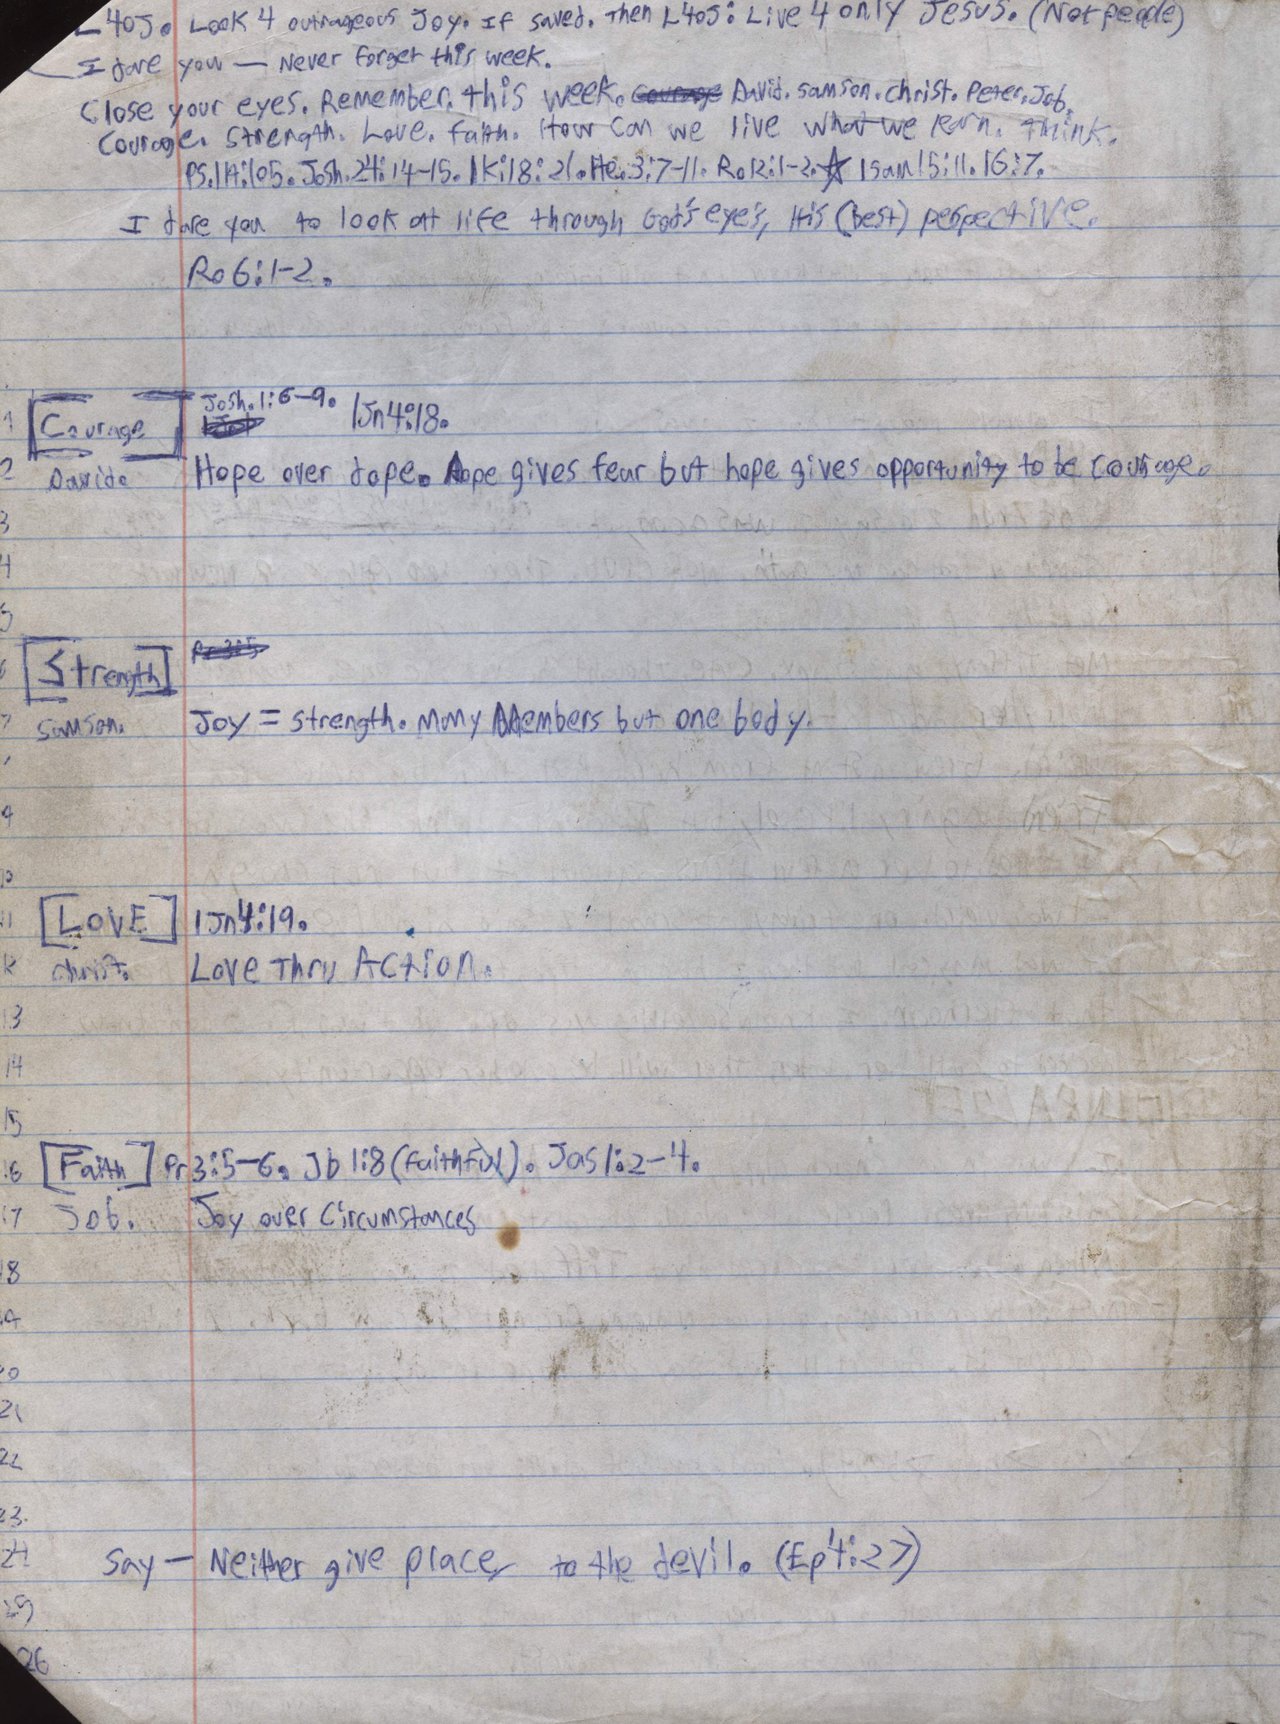 L4OJ. Look 4 outrageous Joy. If saved. Then L4OJ: Live 4 only Jesus. (Not people)
I dare you — Never forget this week.
Close your eyes. Remember. this week. Courage David. Samson. Christ. Peter. Job.
Courage. Strength. Love. Faith. How can we live what we learn. Think.
Ps.119:105. Josh.24:14-15. 1K:18:21. He.3:7-11. Ro12:1-2. ☆ 1Sam15:11. 16:7.
I dare you to look at life through God's eye's, His (best) perspective.
Ro6:1-2.
Josh.1:6-9. 1Jn4:18.
1 [Courage]
2 David. Hope over dope. Dope gives fear but hope gives opportunity to be courage.
3
4
5
Pr3:5
6 [Strength]
7 Samson. Joy = strength. Many Members but one body.
9
10
11 [LovE] 1Jn4:19.
12 Christ. Love Thru ACtion.
13
14
15
16 [Faith] Pr3:5-6. Jb1:8 (Faithful). Jas1:2-4.
17 Job. Joy over Circumstances
18
19
20
21
22
23.
24 Say — Neither give place to the devil. (Ep4:27)
25
26